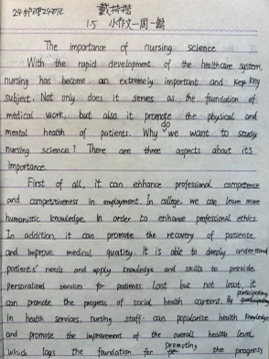 24护理2402 戴
1.5 小作文一周一篇
The importance of nursing science
With the rapid development of the healthcare system,
nursing has become an extremely important and key
subject. Not only does it serves as the foundation of
medical work, but also it promote the physical and
mental health of patients. Why do we want to study
nursing science? There are three aspects about its
importance.
First of all, it can enhance professional competence
and competitiveness in employment. In college, we can learn more
humanistic knowledge, in order to enhance professional ethics.
In addition, it can promote the recovery of patients
and improve medical quantity. It is able to deeply understand
patients' needs and apply knowledge and skills to provide
personalized services for patients. Last but not least,
can promote the progress of social health careers. By participating
in health services, nursing staff can popularize health knowledge
and promote the improvement of the overall health level,
which lays the foundation for promoting the progress